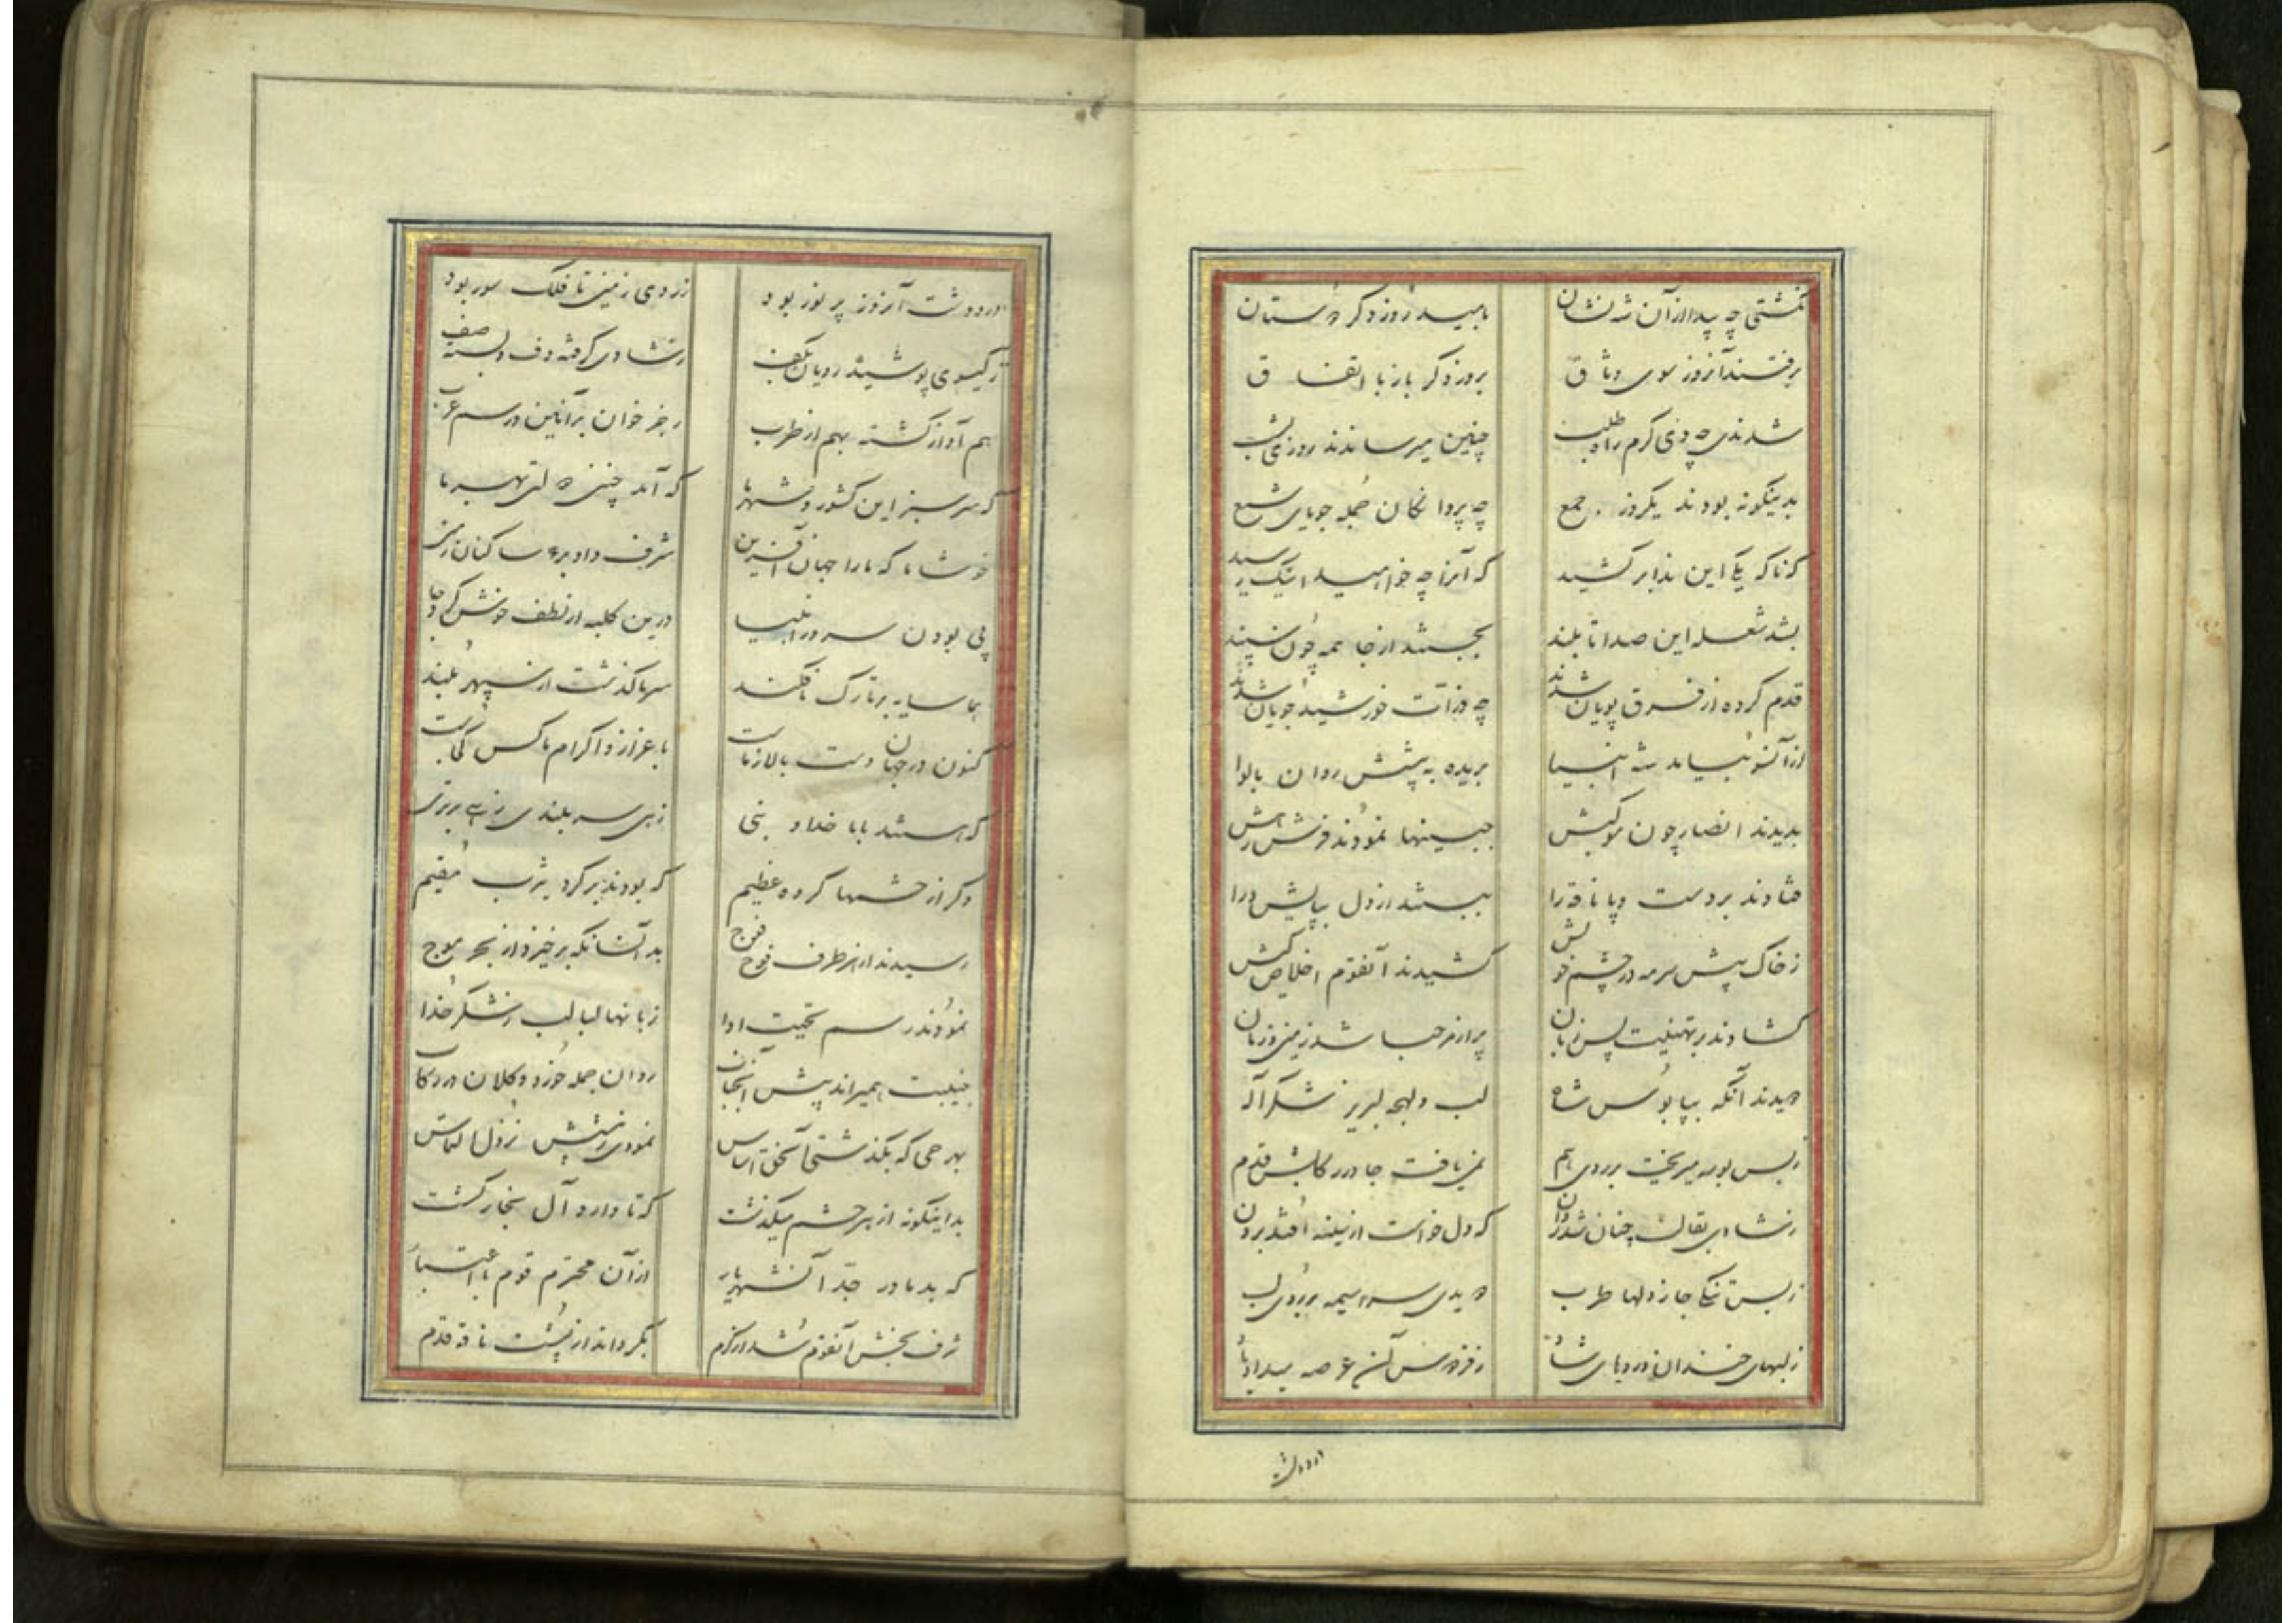 نگشتی چه پیدا از آن شه نشان بامید روز دگر دوستان
برفتند آنروز سوی وثاق بروز دگر باز با اتفاق
شدندی چه دی گرم راه طلب چنین میرساندند روزی بشب
بدینگونه بودند یکروز جمع چه پروانگان جمله جویای شمع
که ناگه یکی این ندا برکشید که آنرا چه خواهید اینک رسید
بشد شعله این صدا تا بلند بجستند از جا همه چون سپند
قدم کرده از فرق پویان شدند چه ذرات خورشید جویان شدند
از آنسو بیامد شه انبیا بریده به پیشش روان با لوا
بدیدند انصار چون موکبش جبینها نمودند فرش رهش
فتادند بر دست و پا ناقه را ببستند از دل بپایش درا
ز خاک پیش سرمه در چشم خویش کشیدند آنقوم اخلاص کیش
گشادند بر تهنیت پس زبان پر از مرحبا شد زمین و زمان
دویدند آنگه بپابوس شاه لب و لهجه لبریز شکر آله
ز بس بوسه میریخت بر روی هم نمی یافت جا در رکابش قدم
ز شادی بقالب چنان شد روان که دل خواست از سینه افتد برون
ز بس تنگی جا ز دلها طرب دویدی سراسیمه بر روی لب
ز لبهای خندان و رویای شاد ز فردوس آن عرصه میداد یاد
در و دشت
در و دشت آنروز پر نور بود ز روی زمین تا فلک سور بود
ز گیسوی پوشیده رویان بکف ز شادی گرفته دف و بسته صف
هم آواز گشته بهم از طرب رجز خوان بر آئین و رسم عرب
که سرسبز این کشور و شهر ما که آمد چنین دولتی بهر ما
خوشا ما که ما را جهان آفرین شرف داد بر ساکنان زمین
پی بودن سرور انبیا درین کلبه از لطف خویش کرد جا
هما سایه بر تارک ما فکند سر ما گذشت از سپهر بلند
کنون در جهان دست بالا ز ماست باعزاز و اکرام ما کس کجاست
که هستند بابا خداد بنی زهی سربلندی زهی برتری
دگر از حشمها گروه عظیم که بودند بر گرد یثرب مقیم
رسیدند از هر طرف فوج فوج بد آنسانکه بر خیزد از بحر موج
نمودند رسم تحیت ادا زبانها لبالب ز شکر خدا
جنیبت همیراند پیش آنجناب روان جمله خورد و کلان در رکاب
بهر حی که بگذشتی آنحق اساس نمودی ز پیشش نزول التماس
بداینگونه از هر حشم میگذشت که تا وارد آل نجار گشت
که بد مادر جد آنشهریار از آن محترم قوم با اعتبار
شرف بخش آنقوم شد از کرم بگرداند از پشت ناقه قدم